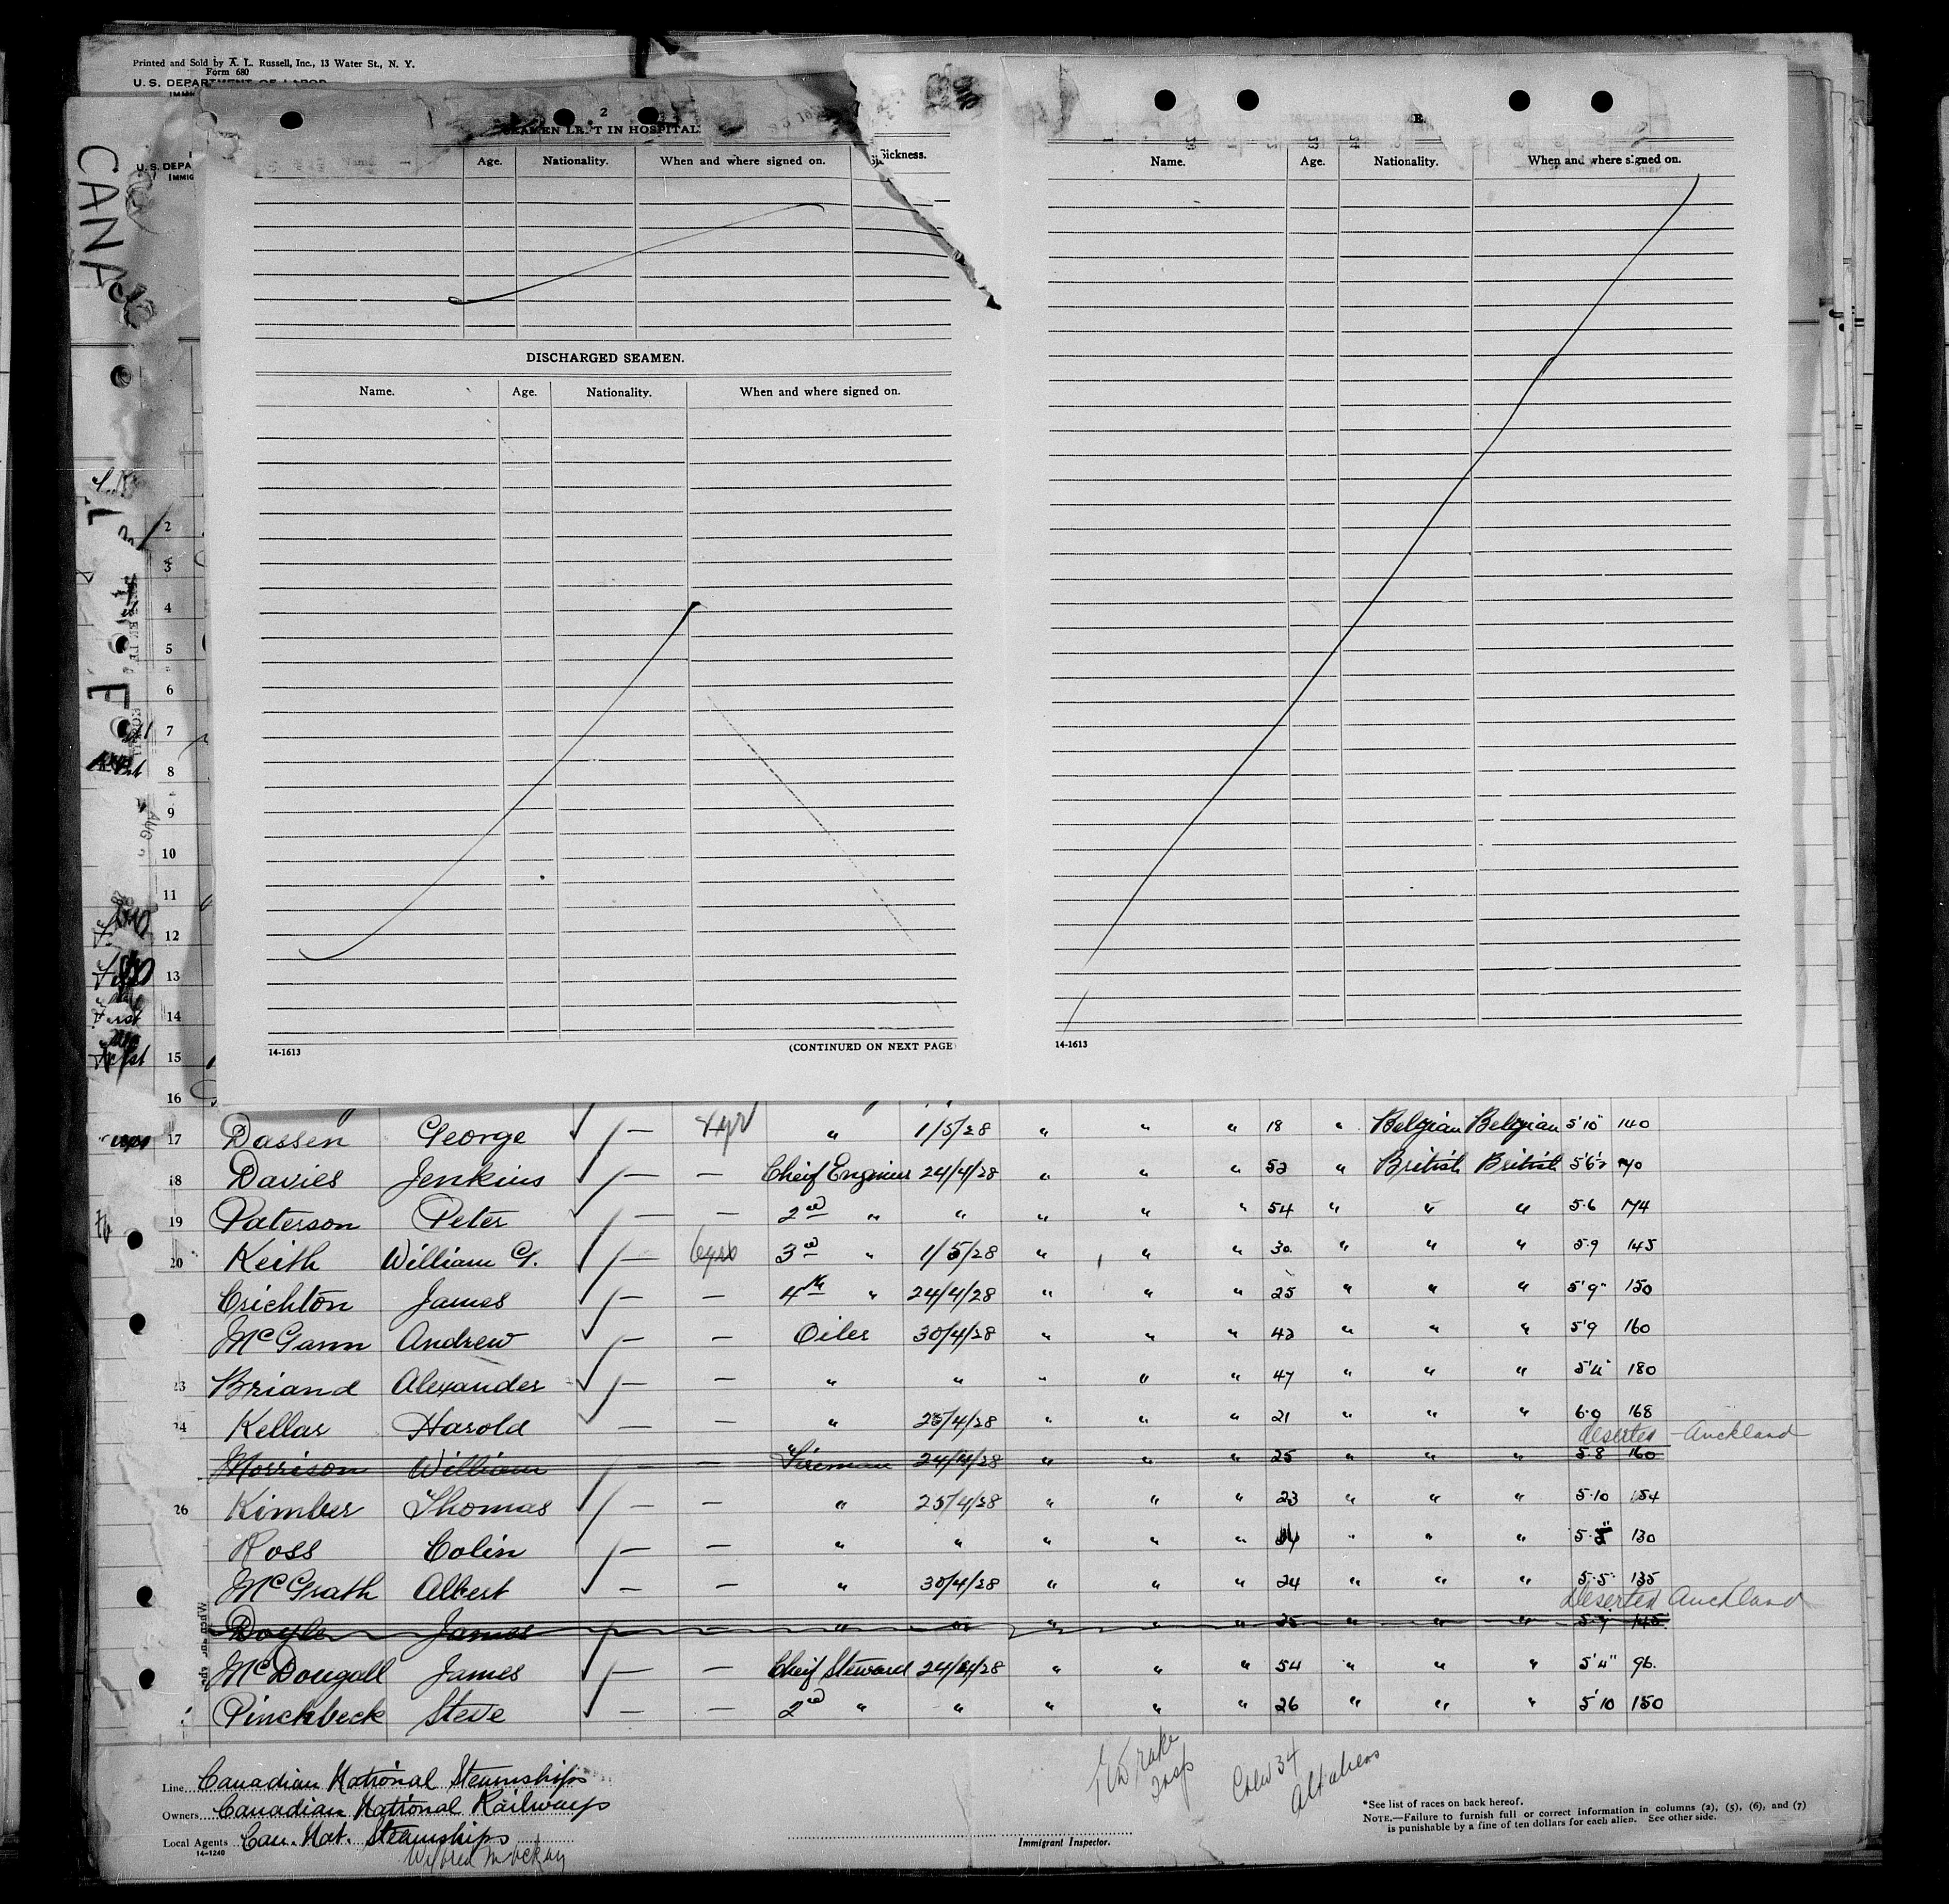 Printed and Sold by A. L. Russell, Inc., 13 Water St., N. Y.
Form 680
U. S. DEPARTMENT OF LABOR
U. S. DEPA
IMMIG
CANA
2
SEAMEN LEFT IN HOSPITAL.
Age. Nationality. When and where signed on. Sickness.
DISCHARGED SEAMEN.
Name. Age. Nationality. When and where signed on.
14-1613 (CONTINUED ON NEXT PAGE
E.
Name. Age. Nationality. When and where signed on.
14-1613
2
3
4
5
6
7
8
9
10
11
12
13
14
15
16
17 Dassen George ✓ — " 1/5/28 " " " 18 " Belgian Belgian 5'10" 140
18 Davies Jenkins ✓ — — Cheif Engineer 24/4/28 " " " 52 " British British 5'6½
19 Paterson Peter ✓ — — 2nd " " " " " 54 " " " 5.6 174
20 Keith William G. ✓ — 6yrs 3rd " 1/5/28 " " " 30 " " " 5.9 145
Crichton James ✓ — — 4th " 24/4/28 " " " 25 " " " 5'9" 150
McGann Andrew ✓ — — Oiler 30/4/28 " " " 42 " " " 5'9 160
23 Briand Alexander ✓ — — " " " " " 47 " " " 180
24 Kellar Harold ✓ — — " 25/4/28 " " " 21 " " " 6.0 168
deserted - Auckland
Morrison William — — Fireman 24/4/28 " " " 25 " " " 5.8 160
26 Kimber Thomas ✓ — — " 25/4/28 " " " 23 " " " 5.10 154
Ross Colin ✓ — — " " " " " " " " 130
McGrath Albert ✓ — — " 30/4/28 " " " 24 " " " 5.5 135
Deserted Auckland
Doyle James " " " " " 25 " " " 5.9 145
McDougall James ✓ — — Cheif Steward 24/4/28 " " " 54 " " " 96.
Pinchbeck Steve ✓ — — 2nd " " " " " 26 " " " 5'10 150
Line Canadian National Steamships
Owners Canadian National Railways
Local Agents Can. Nat. Steamships
14-1240
Crew 34
All aliens
Immigrant Inspector.
*See list of races on back hereof.
NOTE.—Failure to furnish full or correct information in columns (2), (5), (6), and (7)
is punishable by a fine of ten dollars for each alien. See other side.